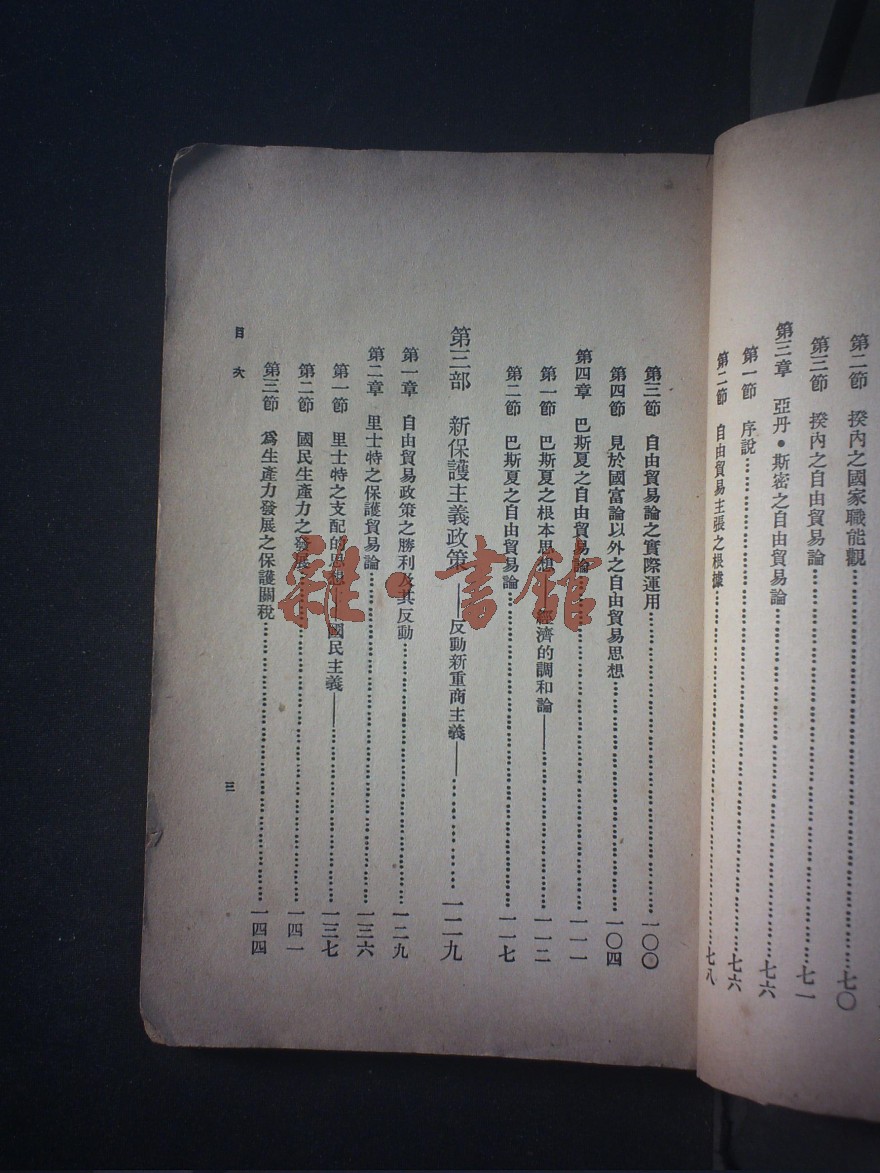 第二節　揆內之國家職能觀………七〇
第三節　揆內之自由貿易論………七一
第三章　亞丹•斯密之自由貿易論………七六
第一節　序說………七六
第二節　自由貿易主張之根據………七八
第三節　自由貿易論之實際運用………一〇〇
第四節　見於國富論以外之自由貿易思想………一〇四
第四章　巴斯夏之自由貿易論………一一一
第一節　巴斯夏之根本思想——經濟的調和論——………一一二
第二節　巴斯夏之自由貿易論………一一七
第三部　新保護主義政策——反動新重商主義——………一二九
第一章　自由貿易政策之勝利及其反動………一二九
第二章　里士特之保護貿易論………一三六
第一節　里士特之支配的思想——國民主義——………一三七
第二節　國民生產力之發展………一四一
第三節　爲生產力發展之保護關稅………一四四
目次
三
雜·書館